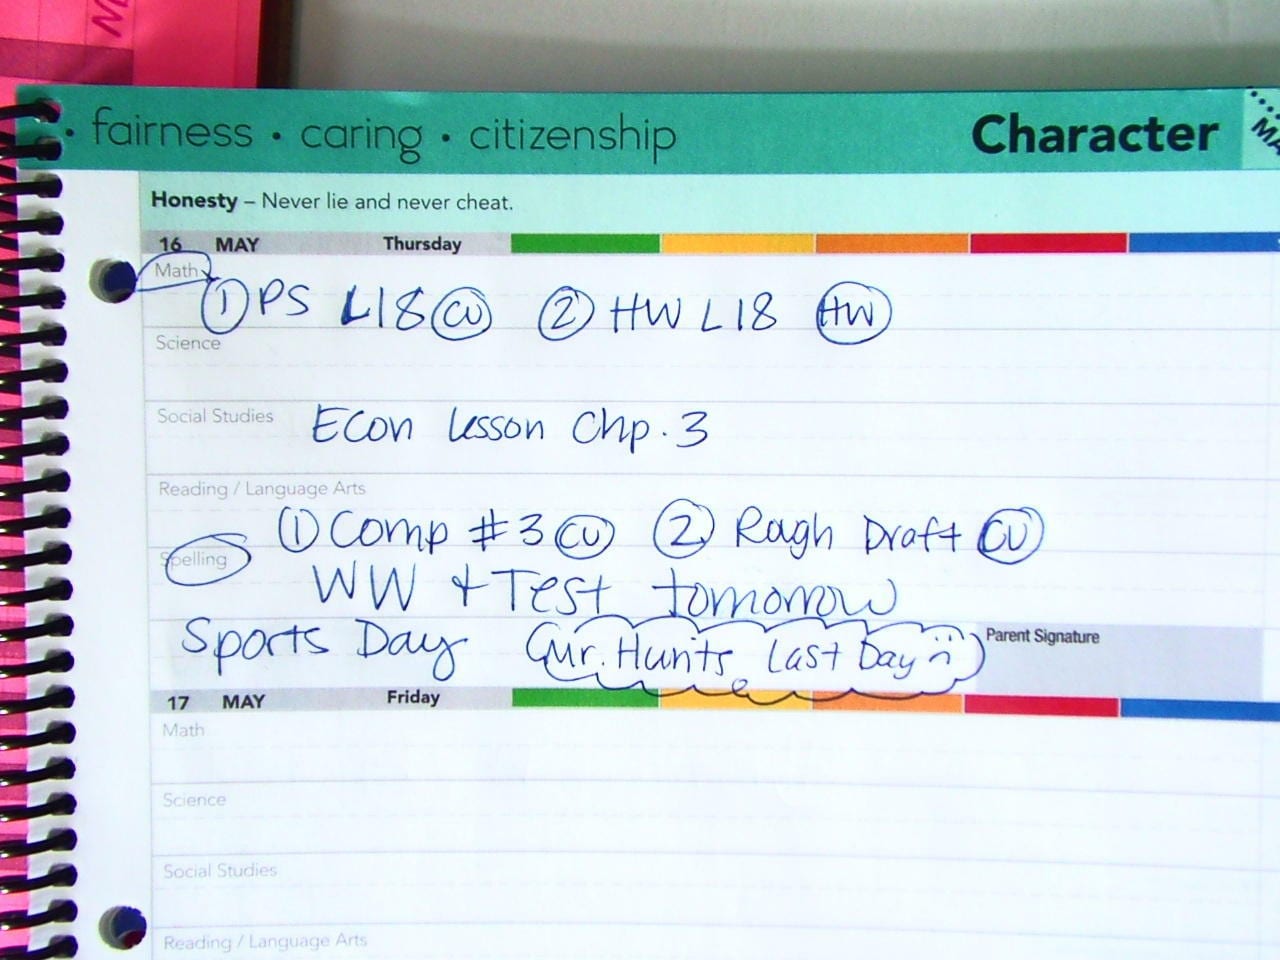 · fairness · caring · citizenship Character MA
Honesty – Never lie and never cheat.
16 MAY Thursday
Math
① PS L18 CW ② HW L18 HW
Science
Social Studies Econ Lesson Chp. 3
Reading / Language Arts
① Comp #3 CW ② Rough Draft CW
Spelling
WW + Test tomorrow
Sports Day Mr. Hunt's Last Day
Parent Signature
17 MAY Friday
Math
Science
Social Studies
Reading / Language Arts